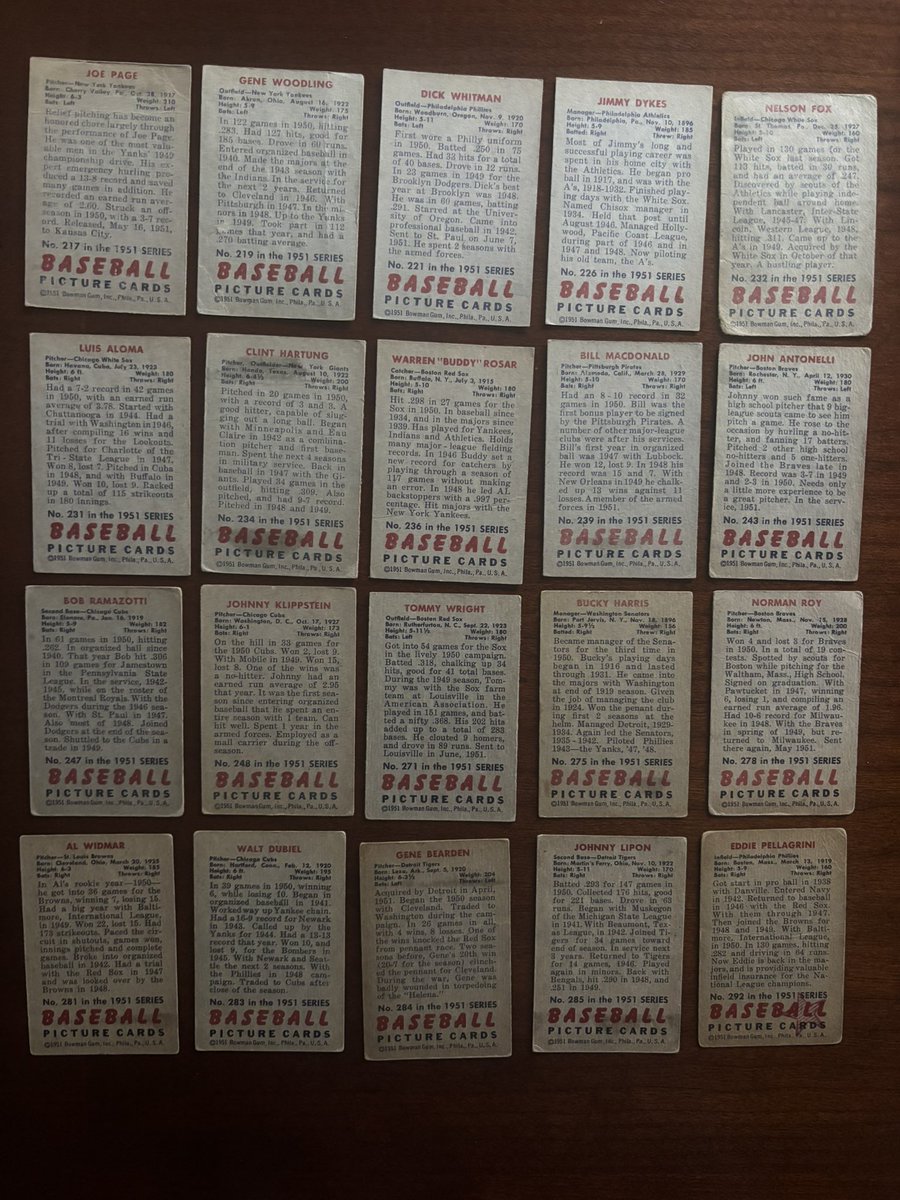 JOE PAGE
Pitcher—New York Yankees
Born: Cherry Valley, Pa., Oct. 28, 1917
Height: 6-3 Weight: 210
Bats: Left Throws: Left
Relief pitching has become an
honored chore largely through
the performance of Joe Page.
He was one of the most valu-
able men in the Yanks' 1949
championship drive. His ex-
pert emergency hurling pro-
duced a 13-8 record and saved
many games in addition. He
recorded an earned run aver-
age of 2.60. Struck an off-
season in 1950, with a 3-7 rec-
ord. Released, May 16, 1951,
to Kansas City.
No. 217 in the 1951 SERIES
BASEBALL
PICTURE CARDS
©1951 Bowman Gum, Inc., Phila., Pa., U. S. A.
GENE WOODLING
Outfield—New York Yankees
Born: Akron, Ohio, August 16, 1922
Height: 5-9 Weight: 175
Bats: Left Throws: Right
In 122 games in 1950, hitting
.283. Had 127 hits, good for
185 bases. Drove in 60 runs.
Entered organized baseball in
1940. Made the majors at the
end of the 1943 season with
the Indians. In the service for
the next 2 years. Returned
to Cleveland in 1946. With
Pittsburgh in 1947. In the mi-
nors in 1948. Up to the Yanks
in 1949. Took part in 112
games that year, and had a
.270 batting average.
No. 219 in the 1951 SERIES
BASEBALL
PICTURE CARDS
©1951 Bowman Gum, Inc., Phila., Pa., U. S. A.
DICK WHITMAN
Outfield—Philadelphia Phillies
Born: Woodburn, Oregon, Nov. 9, 1920
Height: 5-11 Weight: 170
Bats: Left Throws: Right
First wore a Philly uniform
in 1950. Batted .250 in 75
games. Had 33 hits for a total
of 40 bases. Drove in 12 runs.
In 23 games in 1949 for the
Brooklyn Dodgers. Dick's best
year at Brooklyn was 1948.
He was in 60 games, batting
.291. Starred at the Univer-
sity of Oregon. Came into
professional baseball in 1942.
Sent to St. Paul on June 7,
1951. He spent 2 seasons with
the armed forces.
No. 221 in the 1951 SERIES
BASEBALL
PICTURE CARDS
©1951 Bowman Gum, Inc., Phila., Pa., U. S. A.
JIMMY DYKES
Manager—Philadelphia Athletics
Born: Philadelphia, Pa., Nov. 10, 1896
Height: 5-9 Weight: 185
Batted: Right Threw: Right
Most of Jimmy's long and
successful playing career was
spent in his home city with
the Athletics. He began pro
ball in 1917, and was with the
A's, 1918-1932. Finished play-
ing days with the White Sox.
Named Chisox manager in
1934. Held that post until
August 1946. Managed Holly-
wood, Pacific Coast League,
during part of 1946 and in
1947 and 1948. Now piloting
his old team, the A's.
No. 226 in the 1951 SERIES
BASEBALL
PICTURE CARDS
©1951 Bowman Gum, Inc., Phila., Pa., U. S. A.
NELSON FOX
Infield—Chicago White Sox
Born: St Thomas, Pa., Dec. 25, 1927
Height: 5-10 Weight: 160
Bats: Left Throws: Right
Played in 130 games for the
White Sox last season. Got
113 hits, batted in 30 runs,
and had an average of .247.
Discovered by scouts of the
Athletics while playing inde-
pendent ball around home.
With Lancaster, Inter-State
League, 1945-47. With Lin-
coln, Western League, 1948,
hitting .311. Came up to the
A's in 1949. Acquired by the
White Sox in October of that
year. A hustling player.
No. 232 in the 1951 SERIES
BASEBALL
PICTURE CARDS
©1951 Bowman Gum, Inc., Phila., Pa., U. S. A.
LUIS ALOMA
Pitcher—Chicago White Sox
Born: Havana, Cuba, July 23, 1923
Height: 6 ft. Weight: 180
Bats: Right Throws: Right
Had a 7-2 record in 42 games
in 1950, with an earned run
average of 3.78. Started with
Chattanooga in 1944. Had a
trial with Washington in 1946,
after compiling 16 wins and
11 losses for the Lookouts.
Pitched for Charlotte of the
Tri-State League in 1947.
Won 8, lost 7. Pitched in Cuba
in 1948, and with Buffalo in
1949. Won 10, lost 9. Racked
up a total of 115 strikeouts
in 180 innings.
No. 231 in the 1951 SERIES
BASEBALL
PICTURE CARDS
©1951 Bowman Gum, Inc., Phila., Pa., U. S. A.
CLINT HARTUNG
Pitcher, Outfielder—New York Giants
Born: Hondo, Texas, August 10, 1922
Height: 6-4½ Weight: 200
Bats: Right Throws: Right
Pitched in 20 games in 1950,
with a record of 3 and 3. A
good hitter, capable of slug-
ging out a long ball. Began
with Minneapolis and Eau
Claire in 1942 as a combina-
tion pitcher and first base-
man. Spent the next 4 seasons
in military service. Back in
baseball in 1947 with the Gi-
ants. Played 34 games in the
outfield, hitting .309. Also
pitched, and had 9-7 record.
Pitched in 1948 and 1949.
No. 234 in the 1951 SERIES
BASEBALL
PICTURE CARDS
©1951 Bowman Gum, Inc., Phila., Pa., U. S. A.
WARREN "BUDDY" ROSAR
Catcher—Boston Red Sox
Born: Buffalo, N. Y., July 3, 1915
Height: 5-10 Weight: 180
Bats: Right Throws: Right
Hit .298 in 27 games for the
Sox in 1950. In baseball since
1934, and in the majors since
1939. Has played for Yankees,
Indians and Athletics. Holds
many major-league fielding
records. In 1946 Buddy set a
new record for catchers by
playing through a season of
117 games without making
an error. In 1948 he led A.L.
backstoppers with a .997 per-
centage. Hit majors with the
New York Yankees.
No. 236 in the 1951 SERIES
BASEBALL
PICTURE CARDS
©1951 Bowman Gum, Inc., Phila., Pa., U. S. A.
BILL MACDONALD
Pitcher—Pittsburgh Pirates
Born: Alameda, Calif., March 28, 1929
Height: 5-10 Weight: 170
Bats: Right Throws: Right
Had an 8-10 record in 32
games in 1950. Bill was the
first bonus player to be signed
by the Pittsburgh Pirates. A
number of other major-league
clubs were after his services.
Bill's first year in organized
ball was 1947 with Lubbock.
He won 12, lost 9. In 1948 his
record was 15 and 7. With
New Orleans in 1949 he chalk-
ed up 13 wins against 11
losses. A member of the armed
forces in 1951.
No. 239 in the 1951 SERIES
BASEBALL
PICTURE CARDS
©1951 Bowman Gum, Inc., Phila., Pa., U. S. A.
JOHN ANTONELLI
Pitcher—Boston Braves
Born: Rochester, N. Y., April 12, 1930
Height: 6 ft. Weight: 180
Bats: Left Throws: Left
Johnny won such fame as a
high school pitcher that 9 big-
league scouts came to see him
pitch a game. He rose to the
occasion by hurling a no-hit-
ter, and fanning 17 batters.
Pitched 2 other high school
no-hitters and 5 one-hitters.
Joined the Braves late in
1948. Record was 3-7 in 1949
and 2-3 in 1950. Needs only
a little more experience to be
a great pitcher. In the serv-
ice, 1951.
No. 243 in the 1951 SERIES
BASEBALL
PICTURE CARDS
©1951 Bowman Gum, Inc., Phila., Pa., U. S. A.
BOB RAMAZOTTI
Second Base—Chicago Cubs
Born: Elanora, Pa., Jan. 16, 1919
Height: 5-9 Weight: 182
Bats: Right Throws: Right
In 61 games in 1950, hitting
.262. In organized ball since
1940. That year Bob hit .306
in 109 games for Jamestown
in the Pennsylvania State
League. In the service, 1942-
1945, while on the roster of
the Montreal Royals. With the
Dodgers during the 1946 sea-
son. With St. Paul in 1947.
Also most of 1948. Joined
Dodgers at the end of the sea-
son. Shuttled to the Cubs in a
trade in 1949.
No. 247 in the 1951 SERIES
BASEBALL
PICTURE CARDS
©1951 Bowman Gum, Inc., Phila., Pa., U. S. A.
JOHNNY KLIPPSTEIN
Pitcher—Chicago Cubs
Born: Washington, D. C., Oct. 17, 1927
Height: 6-1 Weight: 173
Bats: Right Throws: Right
On the hill in 33 games for
the 1950 Cubs. Won 2, lost 9.
With Mobile in 1949. Won 15,
lost 8. One of the wins was
a no-hitter. Johnny had an
earned run average of 2.95
that year. It was the first sea-
son since entering organized
baseball that he spent an en-
tire season with 1 team. Can
hit well. Spent 1 year in the
armed forces. Employed as a
mail carrier during the off-
season.
No. 248 in the 1951 SERIES
BASEBALL
PICTURE CARDS
©1951 Bowman Gum, Inc., Phila., Pa., U. S. A.
TOMMY WRIGHT
Outfield—Boston Red Sox
Born: Rutherfordton, N. C., Sept. 22, 1923
Height: 5-11½ Weight: 180
Bats: Left Throws: Right
Got into 54 games for the Sox
in the lively 1950 campaign.
Batted .318, chalking up 34
hits, good for 41 total bases.
During the 1949 season, Tom-
my was with the Sox farm
team at Louisville in the
American Association. He
played in 151 games, and bat-
ted a nifty .368. His 202 hits
added up to a total of 283
bases. He clouted 9 homers,
and drove in 89 runs. Sent to
Louisville in June, 1951.
No. 271 in the 1951 SERIES
BASEBALL
PICTURE CARDS
©1951 Bowman Gum, Inc., Phila., Pa., U. S. A.
BUCKY HARRIS
Manager—Washington Senators
Born: Port Jervis, N. Y., Nov. 18, 1896
Height: 5-9½ Weight: 156
Batted: Right Threw: Right
Became manager of the Sena-
tors for the third time in
1950. Bucky's playing days
began in 1916 and lasted
through 1931. He came into
the majors with Washington
at end of 1919 season. Given
the job of managing the club
in 1924. Won the penant
during first 2 seasons at the
helm. Managed Detroit, 1929-
1934. Again led the Senators,
1935-1942. Piloted Phillies
1943—the Yanks, '47, '48.
No. 275 in the 1951 SERIES
BASEBALL
PICTURE CARDS
©1951 Bowman Gum, Inc., Phila., Pa., U. S. A.
NORMAN ROY
Pitcher—Boston Braves
Born: Newton, Mass., Nov. 15, 1928
Height: 6 ft. Weight: 200
Bats: Right Throws: Right
Won 4 and lost 3 for Braves
in 1950. In a total of 19 con-
tests. Spotted by scouts for
Boston while pitching for the
Waltham, Mass., High School.
Signed on graduation. With
Pawtucket in 1947, winning
6, losing 1, and compiling an
earned run average of 1.96.
Had 10-6 record for Milwau-
kee in 1948. With the Braves
in spring of 1949, but re-
turned to Milwaukee. Sent
there again, May 1951.
No. 278 in the 1951 SERIES
BASEBALL
PICTURE CARDS
©1951 Bowman Gum, Inc., Phila., Pa., U. S. A.
AL WIDMAR
Pitcher—St. Louis Browns
Born: Cleveland, Ohio, March 20, 1925
Height: 6-3 Weight: 185
Bats: Right Throws: Right
In Al's rookie year—1950—
he got into 36 games for the
Browns, winning 7, losing 15.
Had a big year with Balti-
more, International League,
in 1949. Won 22, lost 15. Had
173 strikeouts. Paced the cir-
cuit in shutouts, games won,
innings pitched and complete
games. Broke into organized
baseball in 1942. Had a trial
with the Red Sox in 1947
and was looked over by the
Browns in 1948.
No. 281 in the 1951 SERIES
BASEBALL
PICTURE CARDS
©1951 Bowman Gum, Inc., Phila., Pa., U. S. A.
WALT DUBIEL
Pitcher—Chicago Cubs
Born: Hartford, Conn., Feb. 12, 1920
Height: 6 ft. Weight: 193
Bats: Right Throws: Right
In 39 games in 1950, winning
6, while losing 10. Began in
organized baseball in 1941.
Worked way up Yankee chain.
Had a 16-9 record for Newark
in 1943. Called up by the
Yanks for 1944. Had a 13-13
record that year. Won 10, and
lost 9, for the Bombers in
1945. With Newark and Seat-
tle the next 2 seasons. With
the Phillies in 1948 cam-
paign. Traded to Cubs after
close of the season.
No. 283 in the 1951 SERIES
BASEBALL
PICTURE CARDS
©1951 Bowman Gum, Inc., Phila., Pa., U. S. A.
GENE BEARDEN
Pitcher—Detroit Tigers
Born: Lexa, Ark., Sept. 5, 1920
Height: 6-3½ Weight: 204
Bats: Left Throws: Left
Acquired by Detroit in April,
1951. Began the 1950 season
with Cleveland. Traded to
Washington during the cam-
paign. In 26 games in all,
with 4 wins, 8 losses. One of
the wins knocked the Red Sox
from pennant race. Two sea-
sons before, Gene's 20th win
(20-7 for the season) clinch-
ed the pennant for Cleveland.
During the war, Gene was
badly wounded in torpedoing
of the "Helena."
No. 284 in the 1951 SERIES
BASEBALL
PICTURE CARDS
©1951 Bowman Gum, Inc., Phila., Pa., U. S. A.
JOHNNY LIPON
Second Base—Detroit Tigers
Born: Martin's Ferry, Ohio, Nov. 10, 1922
Height: 5-11 Weight: 170
Bats: Right Throws: Right
Batted .293 for 147 games in
1950. Collected 176 hits, good
for 221 bases. Drove in 63
runs. Began with Muskegon
of the Michigan State League
in 1941. With Beaumont, Tex-
as League, in 1942. Joined Ti-
gers for 34 games toward
end of season. In service next
3 years. Returned to Tigers
for 14 games, 1946. Played
again in minors. Back with
Bengals, hit .290 in 1948, and
.251 in 1949.
No. 285 in the 1951 SERIES
BASEBALL
PICTURE CARDS
©1951 Bowman Gum, Inc., Phila., Pa., U. S. A.
EDDIE PELLAGRINI
Infield—Philadelphia Phillies
Born: Boston, Mass., March 13, 1919
Height: 5-9 Weight: 160
Bats: Right Throws: Right
Got start in pro ball in 1938
with Danville. Entered Navy
in 1942. Returned to baseball
in 1946 with the Red Sox.
With them through 1947.
Then joined the Browns for
1948 and 1949. With Balti-
more, International League,
in 1950. In 130 games, hitting
.282 and driving in 64 runs.
Now Eddie is back in the ma-
jors, and is providing valuable
infield insurance for the Na-
tional League champions.
No. 292 in the 1951 SERIES
BASEBALL
PICTURE CARDS
©1951 Bowman Gum, Inc., Phila., Pa., U. S. A.